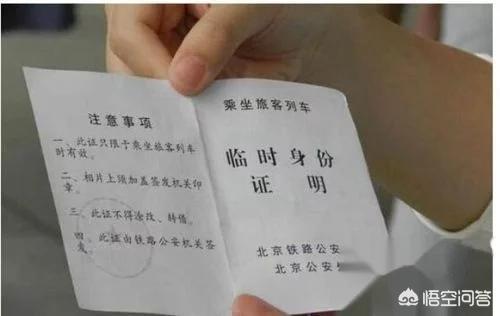 注意事项
一、此证只限于乘坐旅客列车
时有效。
二、相片上须加盖签发机关印
章。
三、此证不得涂改、转借。
四、此证由铁路公安机关签
发。
乘坐旅客列车
临时身份
证明
北京铁路公安
北京公安
悟空问答